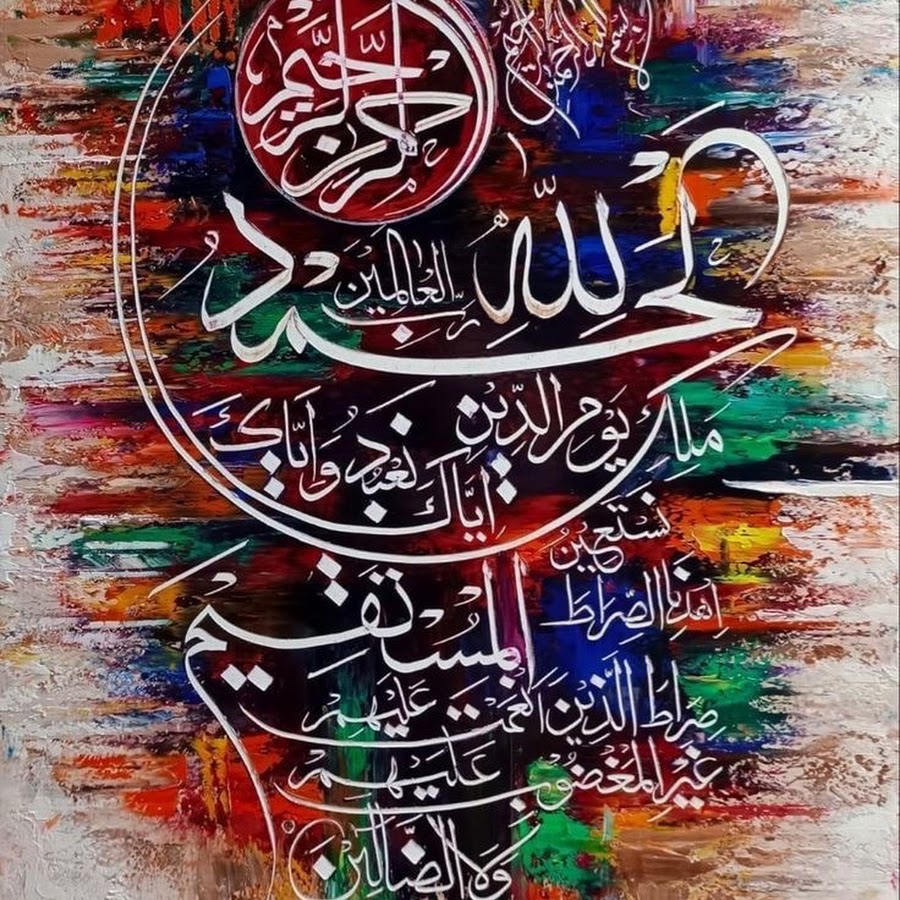 بسم الله الرحمن الرحيم
الحمد لله رب العالمين
الرحمن الرحيم
ملك يوم الدين
اياك نعبد واياك
نستعين
اهدنا الصراط
المستقيم
صراط الذين انعمت عليهم
غير المغضوب عليهم
ولا الضالين